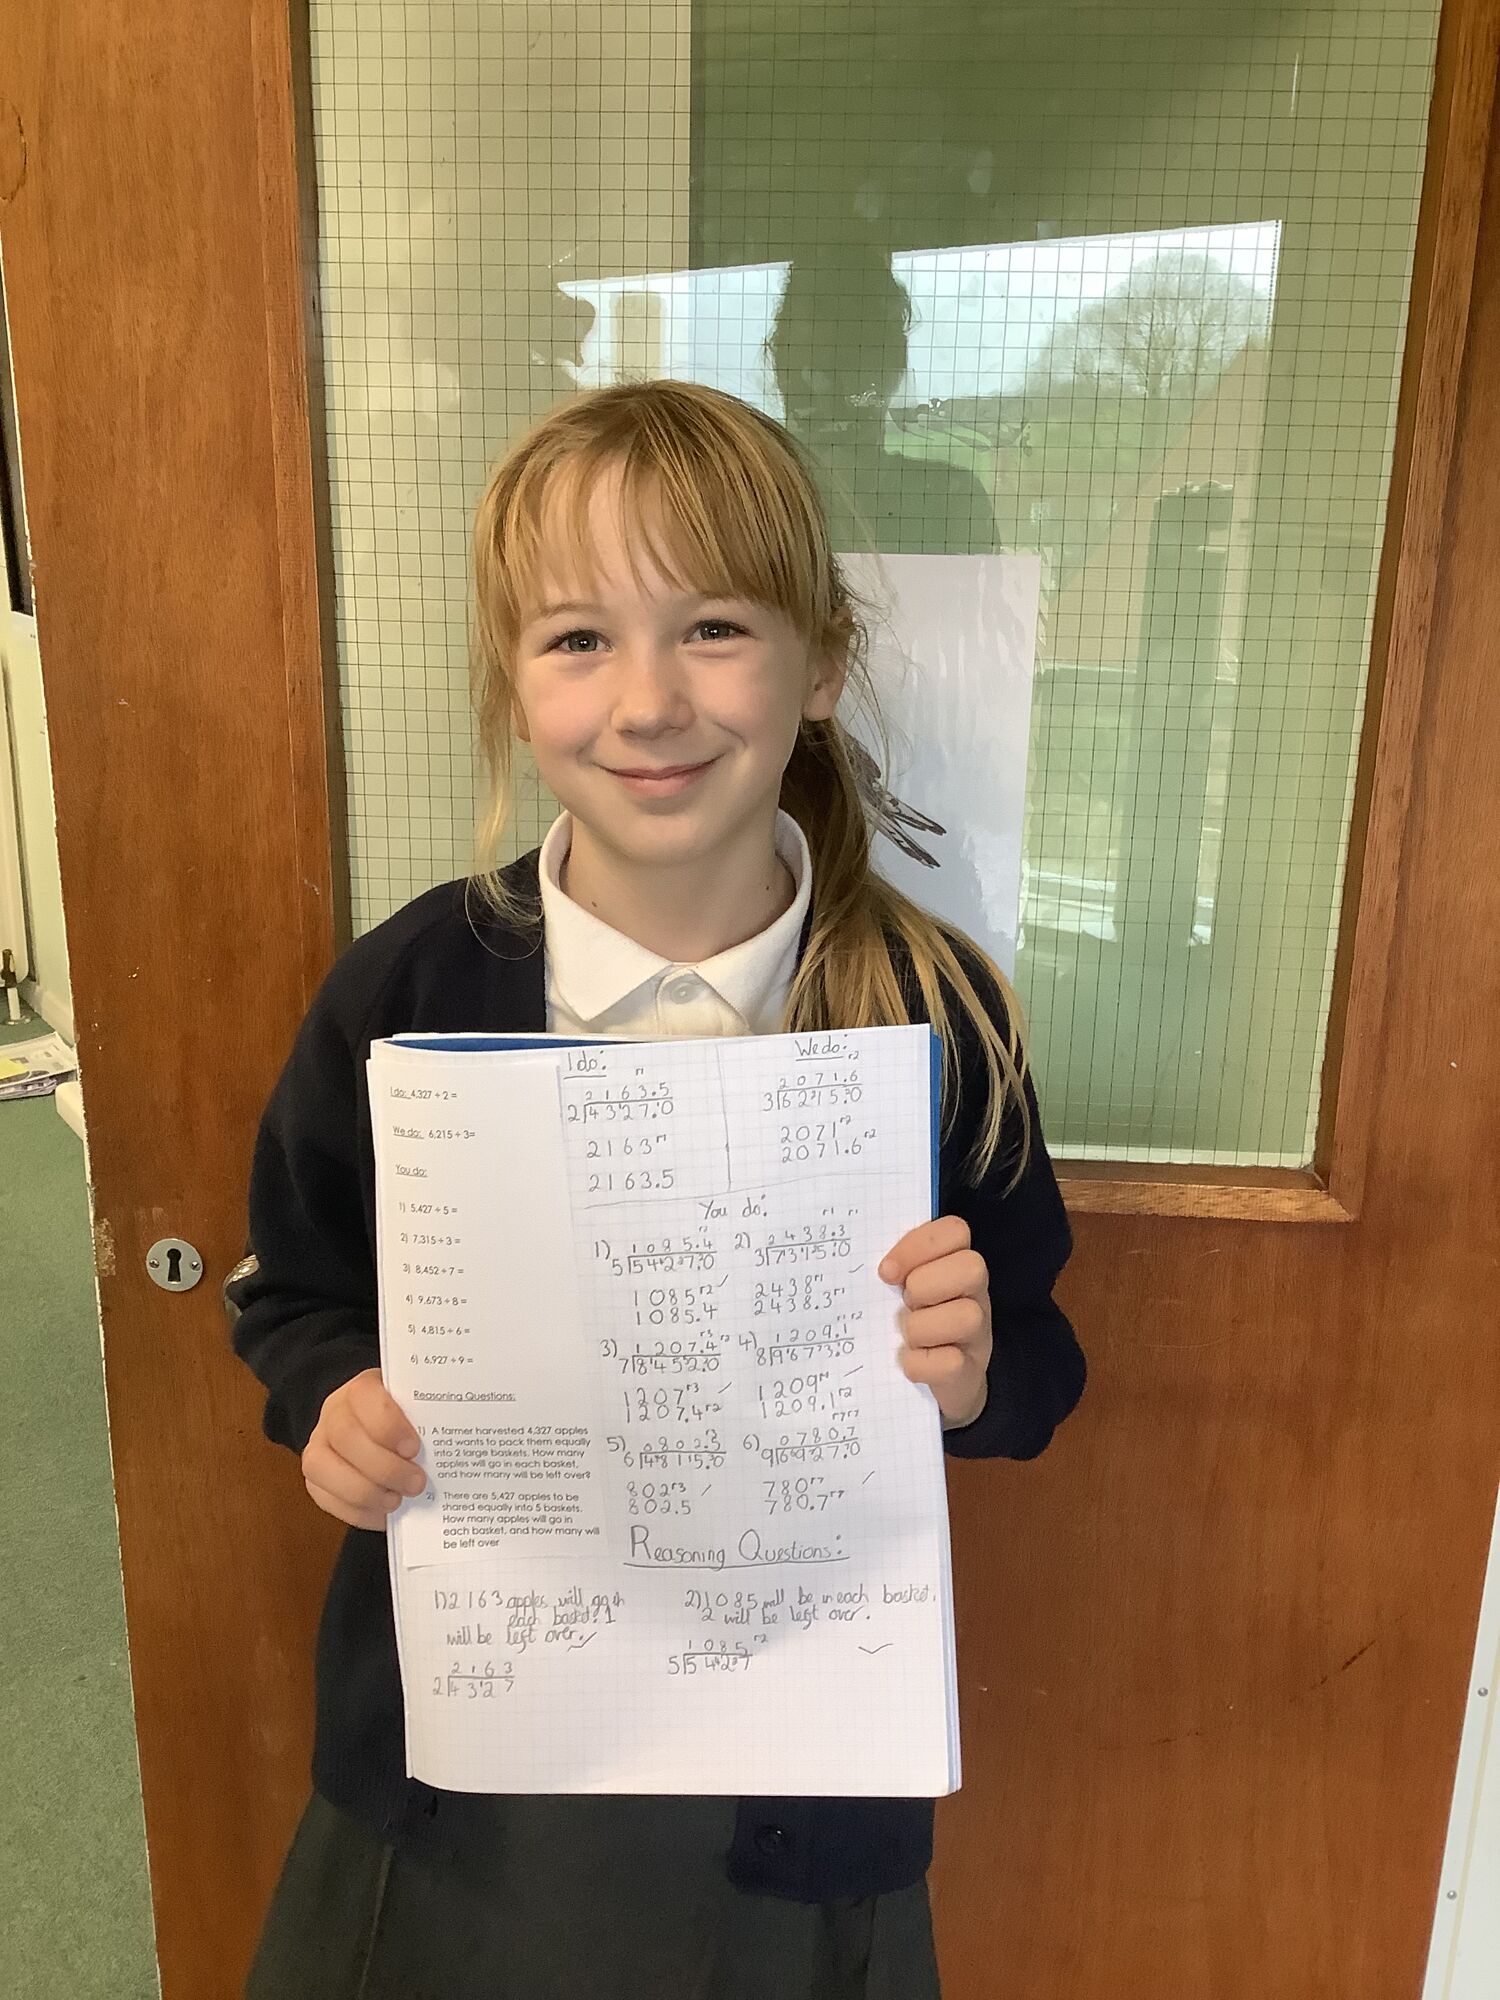 I do: 4,327 ÷ 2 =
We do: 6,215 ÷ 3=
You do:
1) 5,427 ÷ 5 =
2) 7,315 ÷ 3 =
3) 8,452 ÷ 7 =
4) 9,673 ÷ 8 =
5) 4,815 ÷ 6 =
6) 6,927 ÷ 9 =
Reasoning Questions:
1) A farmer harvested 4,327 apples
and wants to pack them equally
into 2 large baskets. How many
apples will go in each basket,
and how many will be left over?
2) There are 5,427 apples to be
shared equally into 5 baskets.
How many apples will go in
each basket, and how many will
be left over
I do:
r1
2 1 6 3.5
2 4 3 ¹2 7.¹0
2163 r1
2163.5
We do:
r2
2 0 7 1.6
3 6 2 ²1 5.²0
2071 r2
2071.6 r2
You do:
r2
1) 1 0 8 5.4
5 5 4 ⁴2 ²7.²0
1085 r2
1085.4
r1 r1
2) 2 4 3 8.3
3 7 ¹3 ¹1 ²5.¹0
2438 r1
2438.3 r1
r3 r2
3) 1 2 0 7.4
7 8 ¹4 5 ⁵2.³0
1207 r3
1207.4 r2
r1 r2
4) 1 2 0 9.1
8 9 ¹6 7 ⁷3.¹0
1209 r1
1209.1 r2
r3
5) 0 8 0 2.5
6 4 ⁴8 1 ¹5.³0
802 r3
802.5
r7 r7
6) 0 7 8 0.7
9 6 ⁶9 ⁶2 7.⁷0
780 r7
780.7 r7
Reasoning Questions:
1) 2163 apples will go in
each basket. 1
will be left over.
2 1 6 3
2 4 3 ¹2 7
2) 1085 will be in each basket.
2 will be left over.
1 0 8 5 r2
5 5 4 ⁴2 ²7